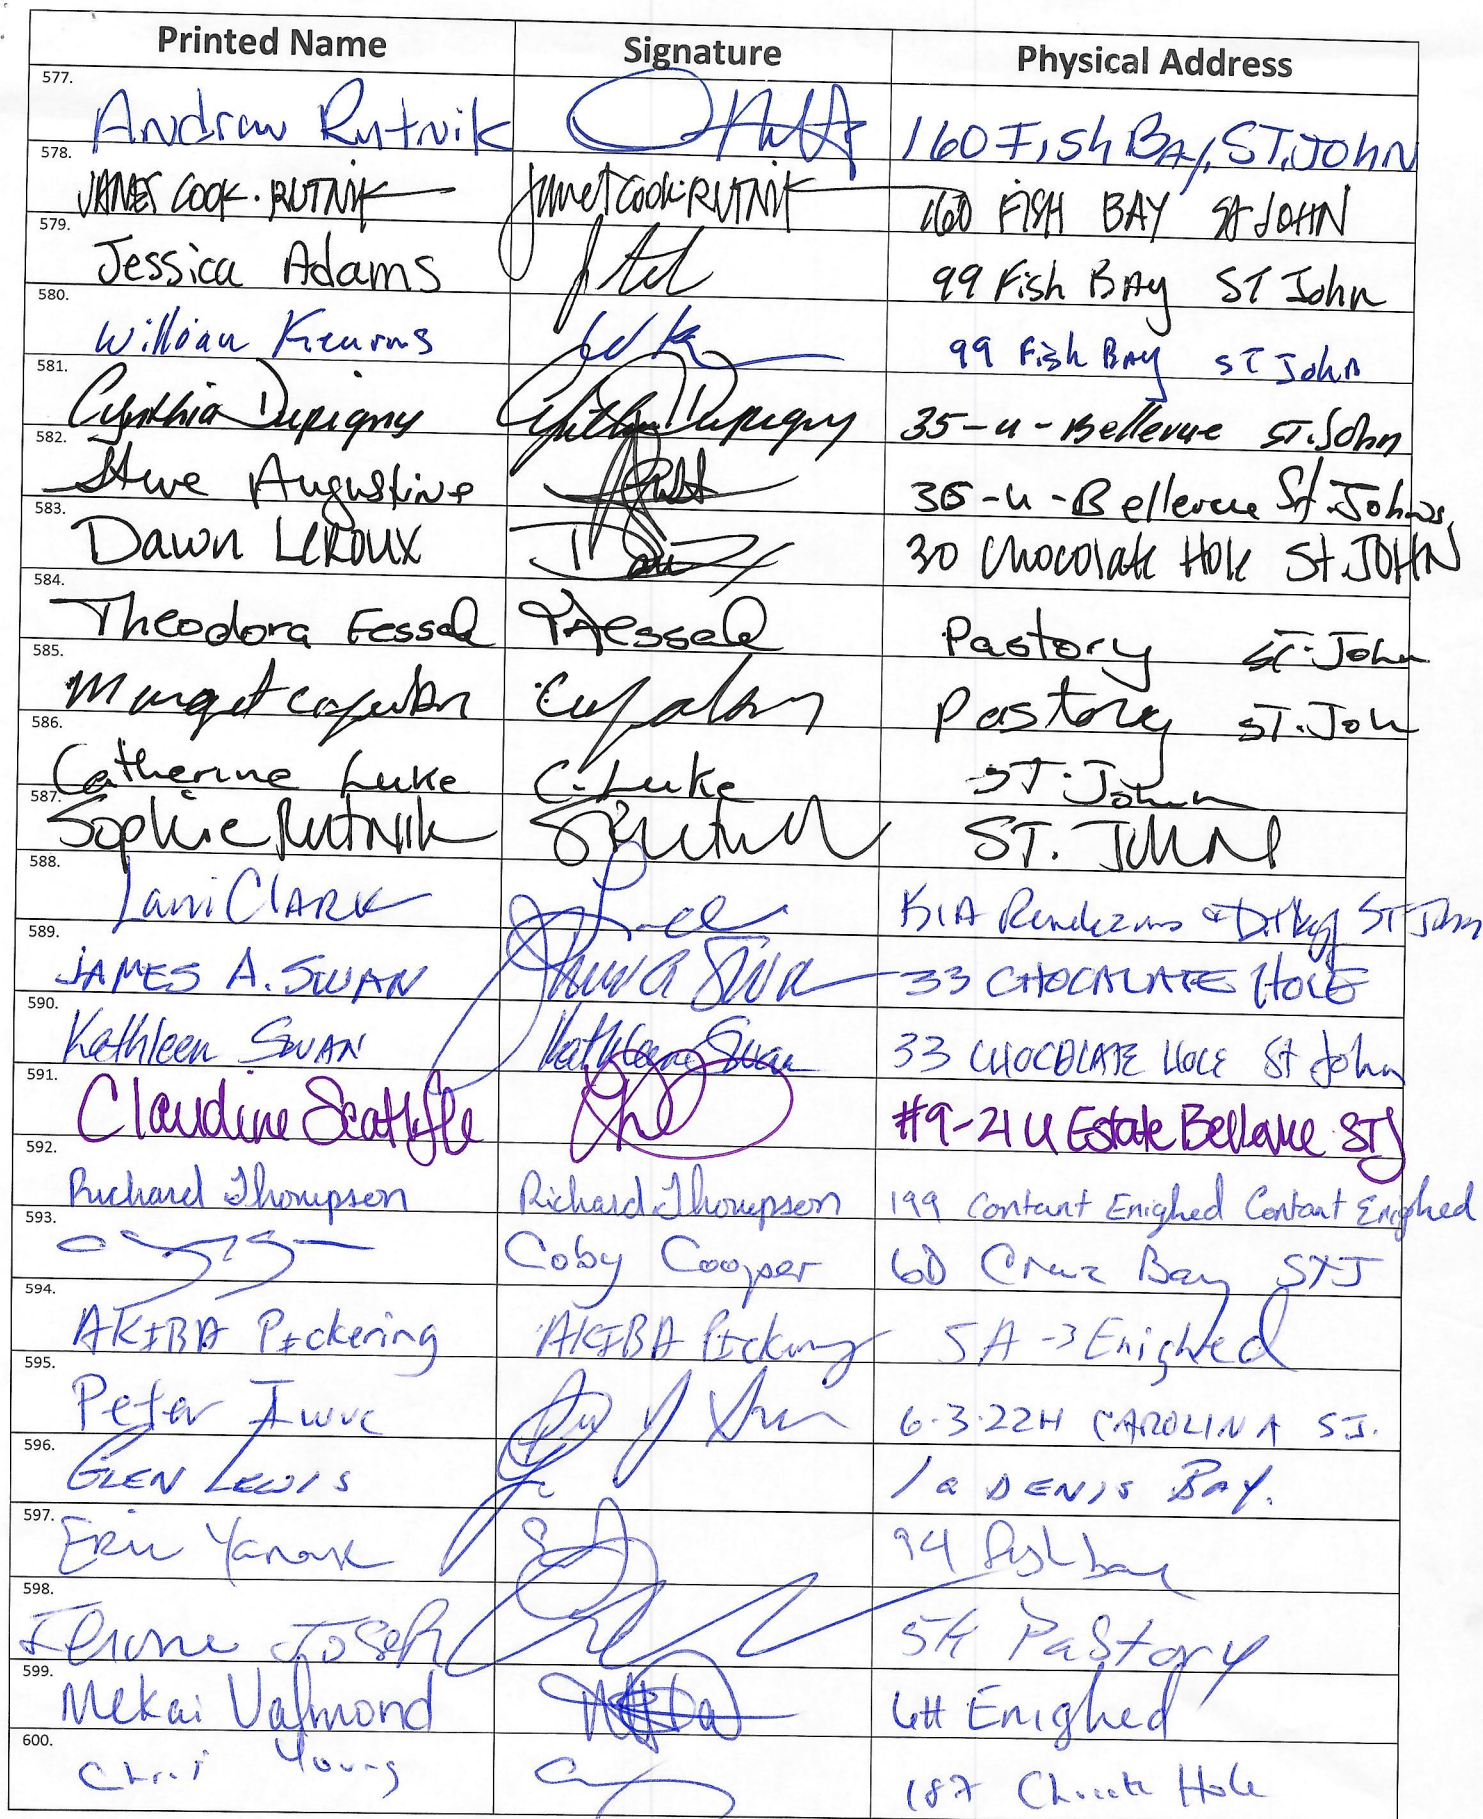 Printed Name Signature Physical Address
577. Andrew Rutnik 160 Fish Bay, ST. JOHN
578. JANET COOK-RUTNIK Janet Cook-RUTNIK 160 FISH BAY ST JOHN
579. Jessica Adams 99 Fish BAy ST John
580. William Kearns WK 99 Fish BAy ST John
581. Cynthia Dupigny Cynthia Dupigny 35-u-Bellevue ST. John
582. Steve Augustine 35-u-Bellevue St. Johns,
583. Dawn LeROUX Dawn 30 Chocolate Hole St. JOHN
584. Theodora Fessal TFessal Pastory ST. John
585. Pastory ST. John
586. Catherine Luke C. Luke ST. John
587. Sophie RUTNIK SRutnik ST. JOHN
588. Lani CLARK ST John
589. JAMES A. SWAN James A Swan 33 CHOCALATE HOLE
590. Kathleen SWAN Kathleen Swan 33 CHOCOLATE HOLE St John
591. Claudine Scatliffe #9-21 U Estate Bellevue STJ
592. Richard Thompson Richard Thompson 199 Contant Enighed Contant Enighed
593. Coby Cooper 6D Cruz Bay STJ
594. AKIBA PIckering AKIBA PIckering 5A-3 Enighed
595. Peter 6-3-22H CAROLINA S.J.
596. GLEN LEWIS 1a DENIS BAY.
597. Eric 94 fish bay
598. Joseph Pastory
599. Mekai Valmond 6H Enighed
600. Chris Young 187 Hole